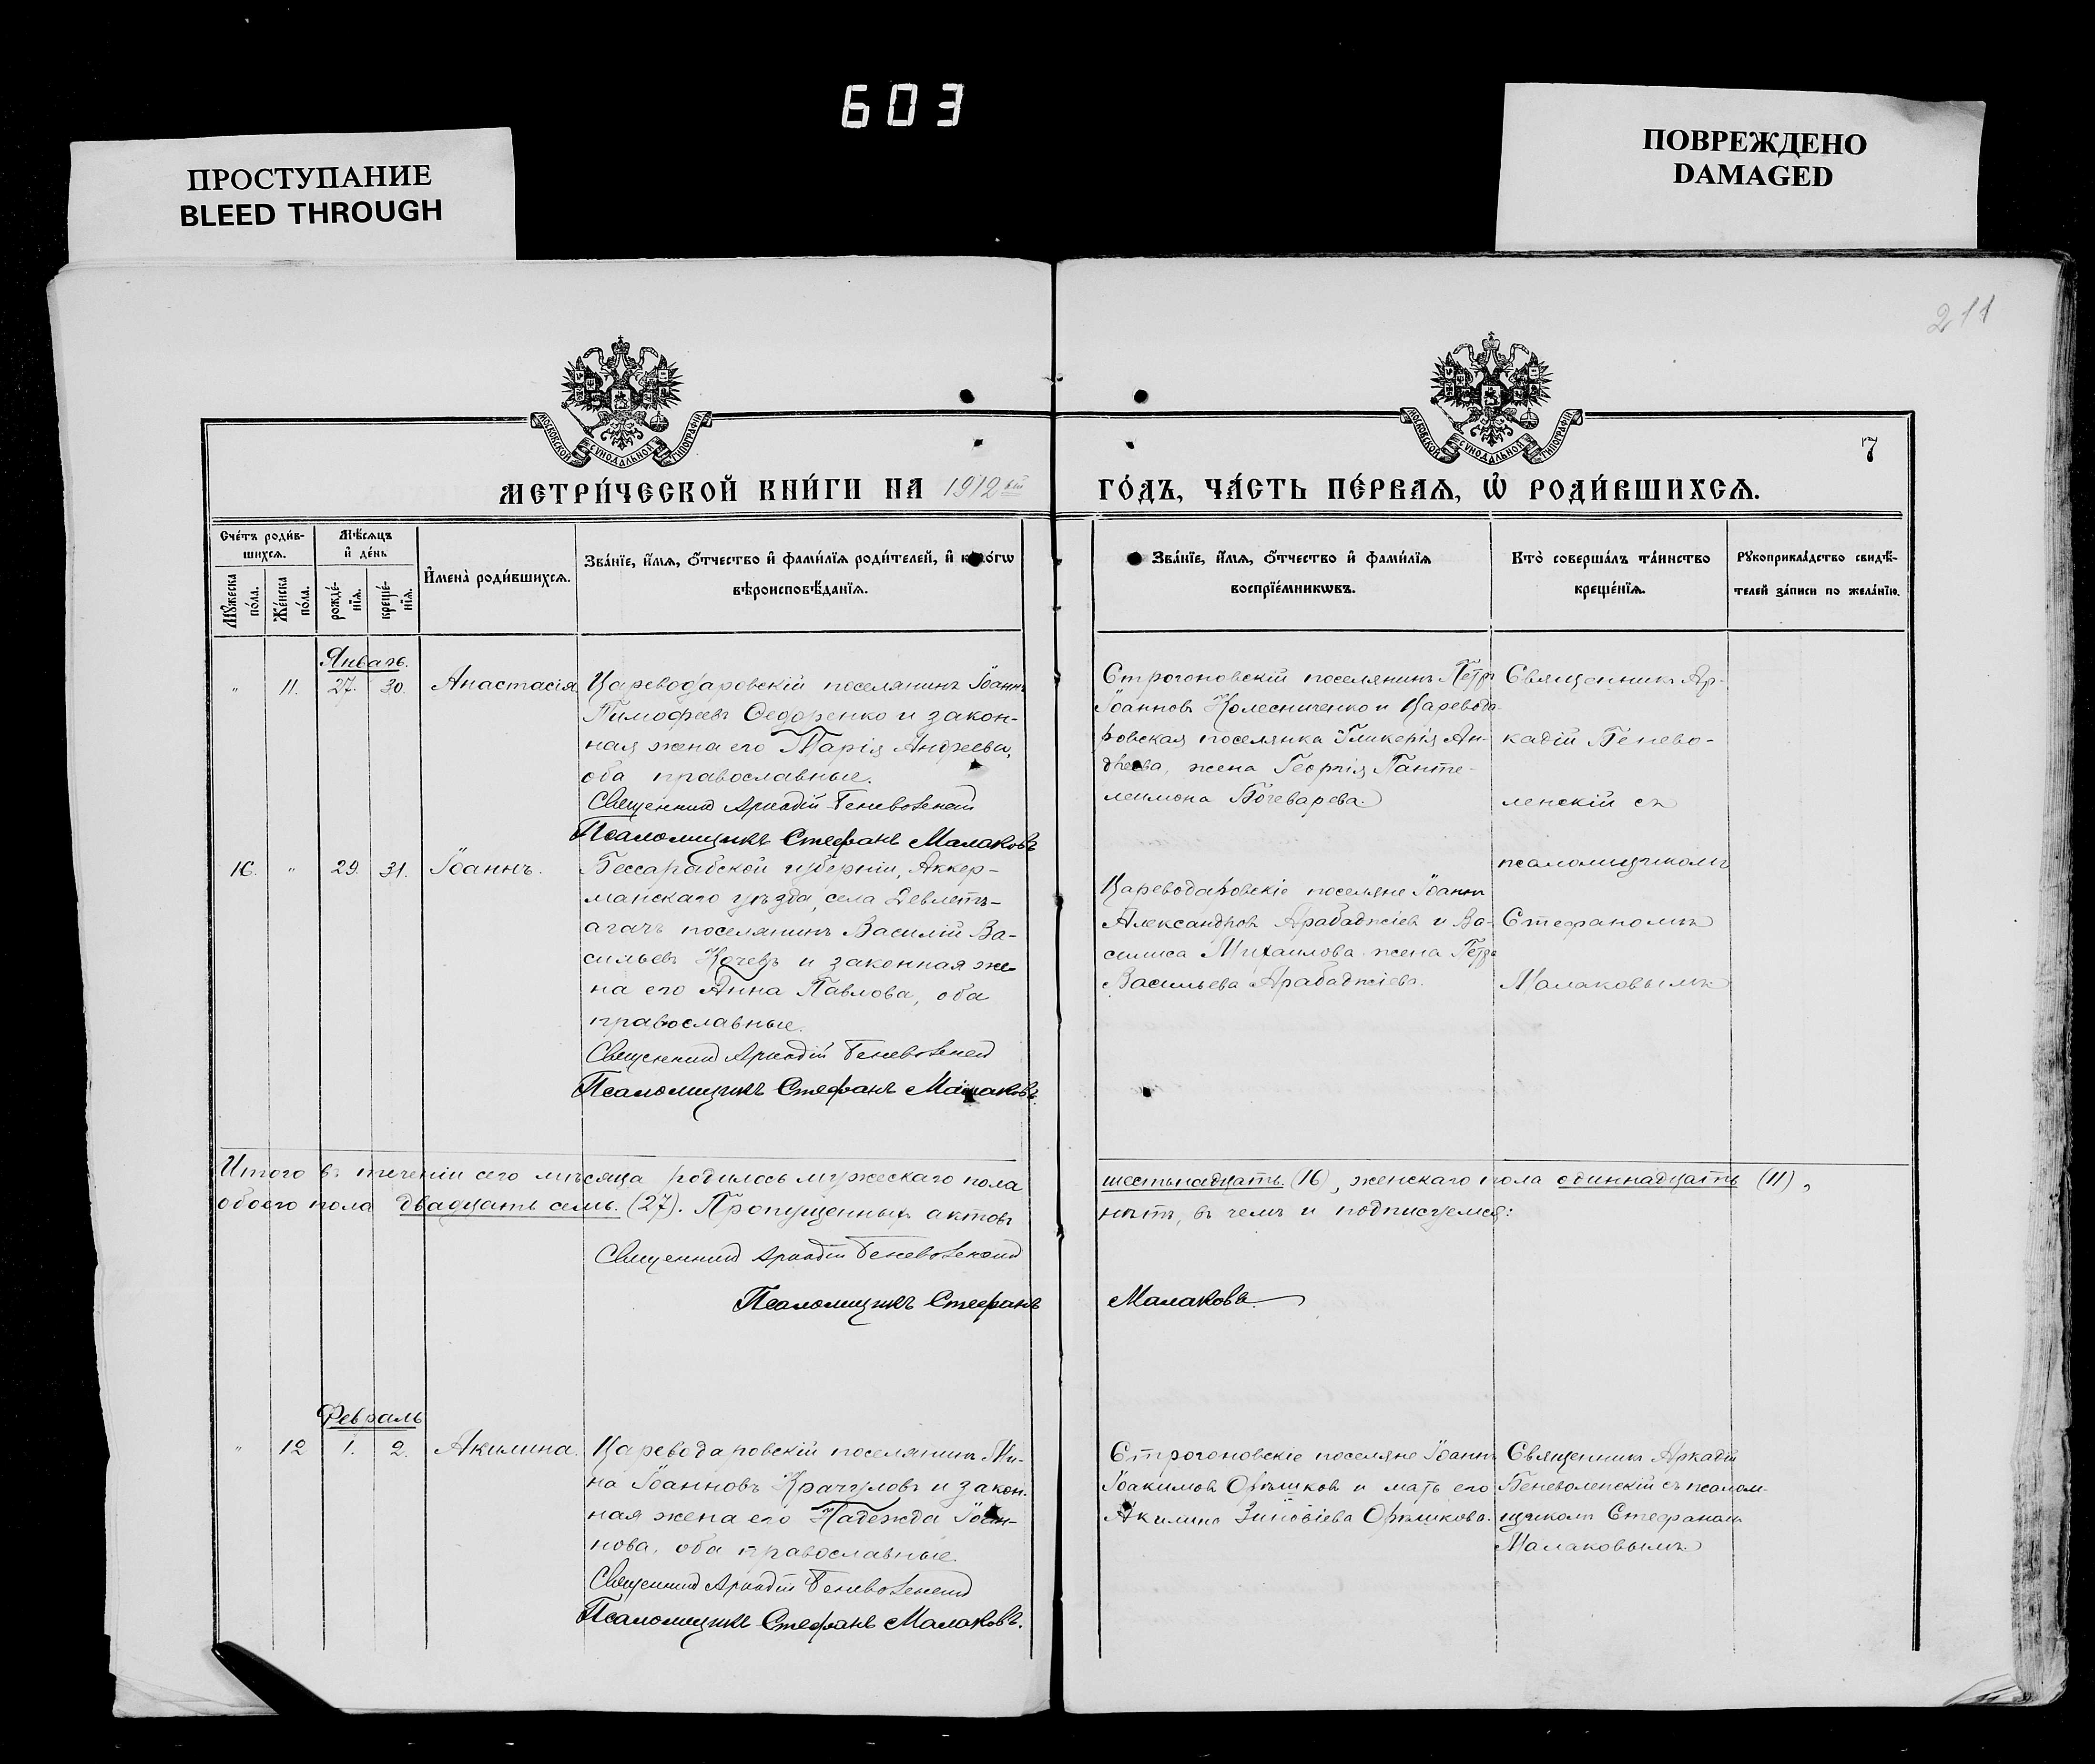 603
ПРОСТУПАНИЕ
BLEED THROUGH
ПОВРЕЖДЕНО
DAMAGED
211
МОСКОВСКОЙ СУНОДАЛЬНОЙ ТИПОГРАФІИ
МОСКОВСКОЙ СУНОДАЛЬНОЙ ТИПОГРАФІИ
7
МЕТРИ́ЧЕСКОЙ КНИ́ГИ НА 1912 ый
ГО́ДЪ, ЧА́СТЬ ПЕ́РВАЯ, Ѽ РОДИ́ВШИХСЯ.
Сче́тъ роди́в-
шихся.
Мꙋ́жеска по́ла.
Же́нска по́ла.
Мѣ́сяцъ
и҆ де́нь
рожде́-
нїя.
креще́-
нїя.
И҆мена̀ роди́вшихся.
Зва́нїе, и҆́мя, ѻ҆́тчество и҆ фами́лїя роди́телей, и҆ како́гѡ
вѣроисповѣ́данїя.
Зва́нїе, и҆́мя, ѻ҆́тчество и҆ фами́лїя
воспрїе́мникѡвъ.
Кто̀ соверша́лъ та́инство
креще́нїя.
Рꙋкоприкла́дство свидѣ́-
телей за́писи по жела́нїю.
Январь.
" 11. 27. 30. Анастасія
Цареводаровскій поселянинъ Іоаннъ
Тимофеевъ Ѳедоренко и закон-
ная жена его Марія Андреева,
оба православные.
Священникъ Аркадій Беневоленскій
Псаломщикъ Стефанъ Малаковъ
Строгоновскій поселянинъ Петръ
Іоанновъ Колесниченко и Царевода-
ровская поселянка Гликерія Ан-
дреева, жена Георгія Панте-
леимона Бочеварева.
Священникъ Ар-
кадій Бенево-
ленскій съ
псаломщикомъ
Стефаномъ
Малаковымъ
16. " 29. 31. Іоаннъ.
Бессарабской губерніи, Аккер-
манскаго уѣзда, села Девлетъ-
агачъ поселянинъ Василій Ва-
сильевъ Кочевъ и законная же-
на его Анна Павлова, оба
православные.
Священникъ Аркадій Беневоленскій
Псаломщикъ Стефанъ Малаковъ.
Цареводаровскіе поселяне Іоаннъ
Александровъ Арабаджіевъ и Ва-
силиса Михаилова жена Петра
Васильева Арабаджіева.
Итого въ теченіи сего мѣсяца родилось мужескаго пола
шестьнадцать (16), женскаго пола одиннадцать (11),
обоего пола двадцать семь. (27). Пропущенныхъ актовъ
нѣтъ, въ чемъ и подписуемся:
Священникъ Аркадій Беневоленскій
Псаломщикъ Стефанъ Малаковъ.
Февраль
" 12 1. 2. Акилина.
Цареводаровскій поселянинъ Ми-
на Іоанновъ Крачуловъ и закон-
ная жена его Надежда Іоан-
нова, оба православные.
Священникъ Аркадій Беневоленскій
Псаломщикъ Стефанъ Малаковъ.
Строгоновскіе поселяне Іоаннъ
Іоакимовъ Орѣшковъ и мать его
Акилина Зиновіева Орѣшкова.
Священникъ Аркадій
Беневоленскій съ псалом-
щикомъ Стефаномъ
Малаковымъ